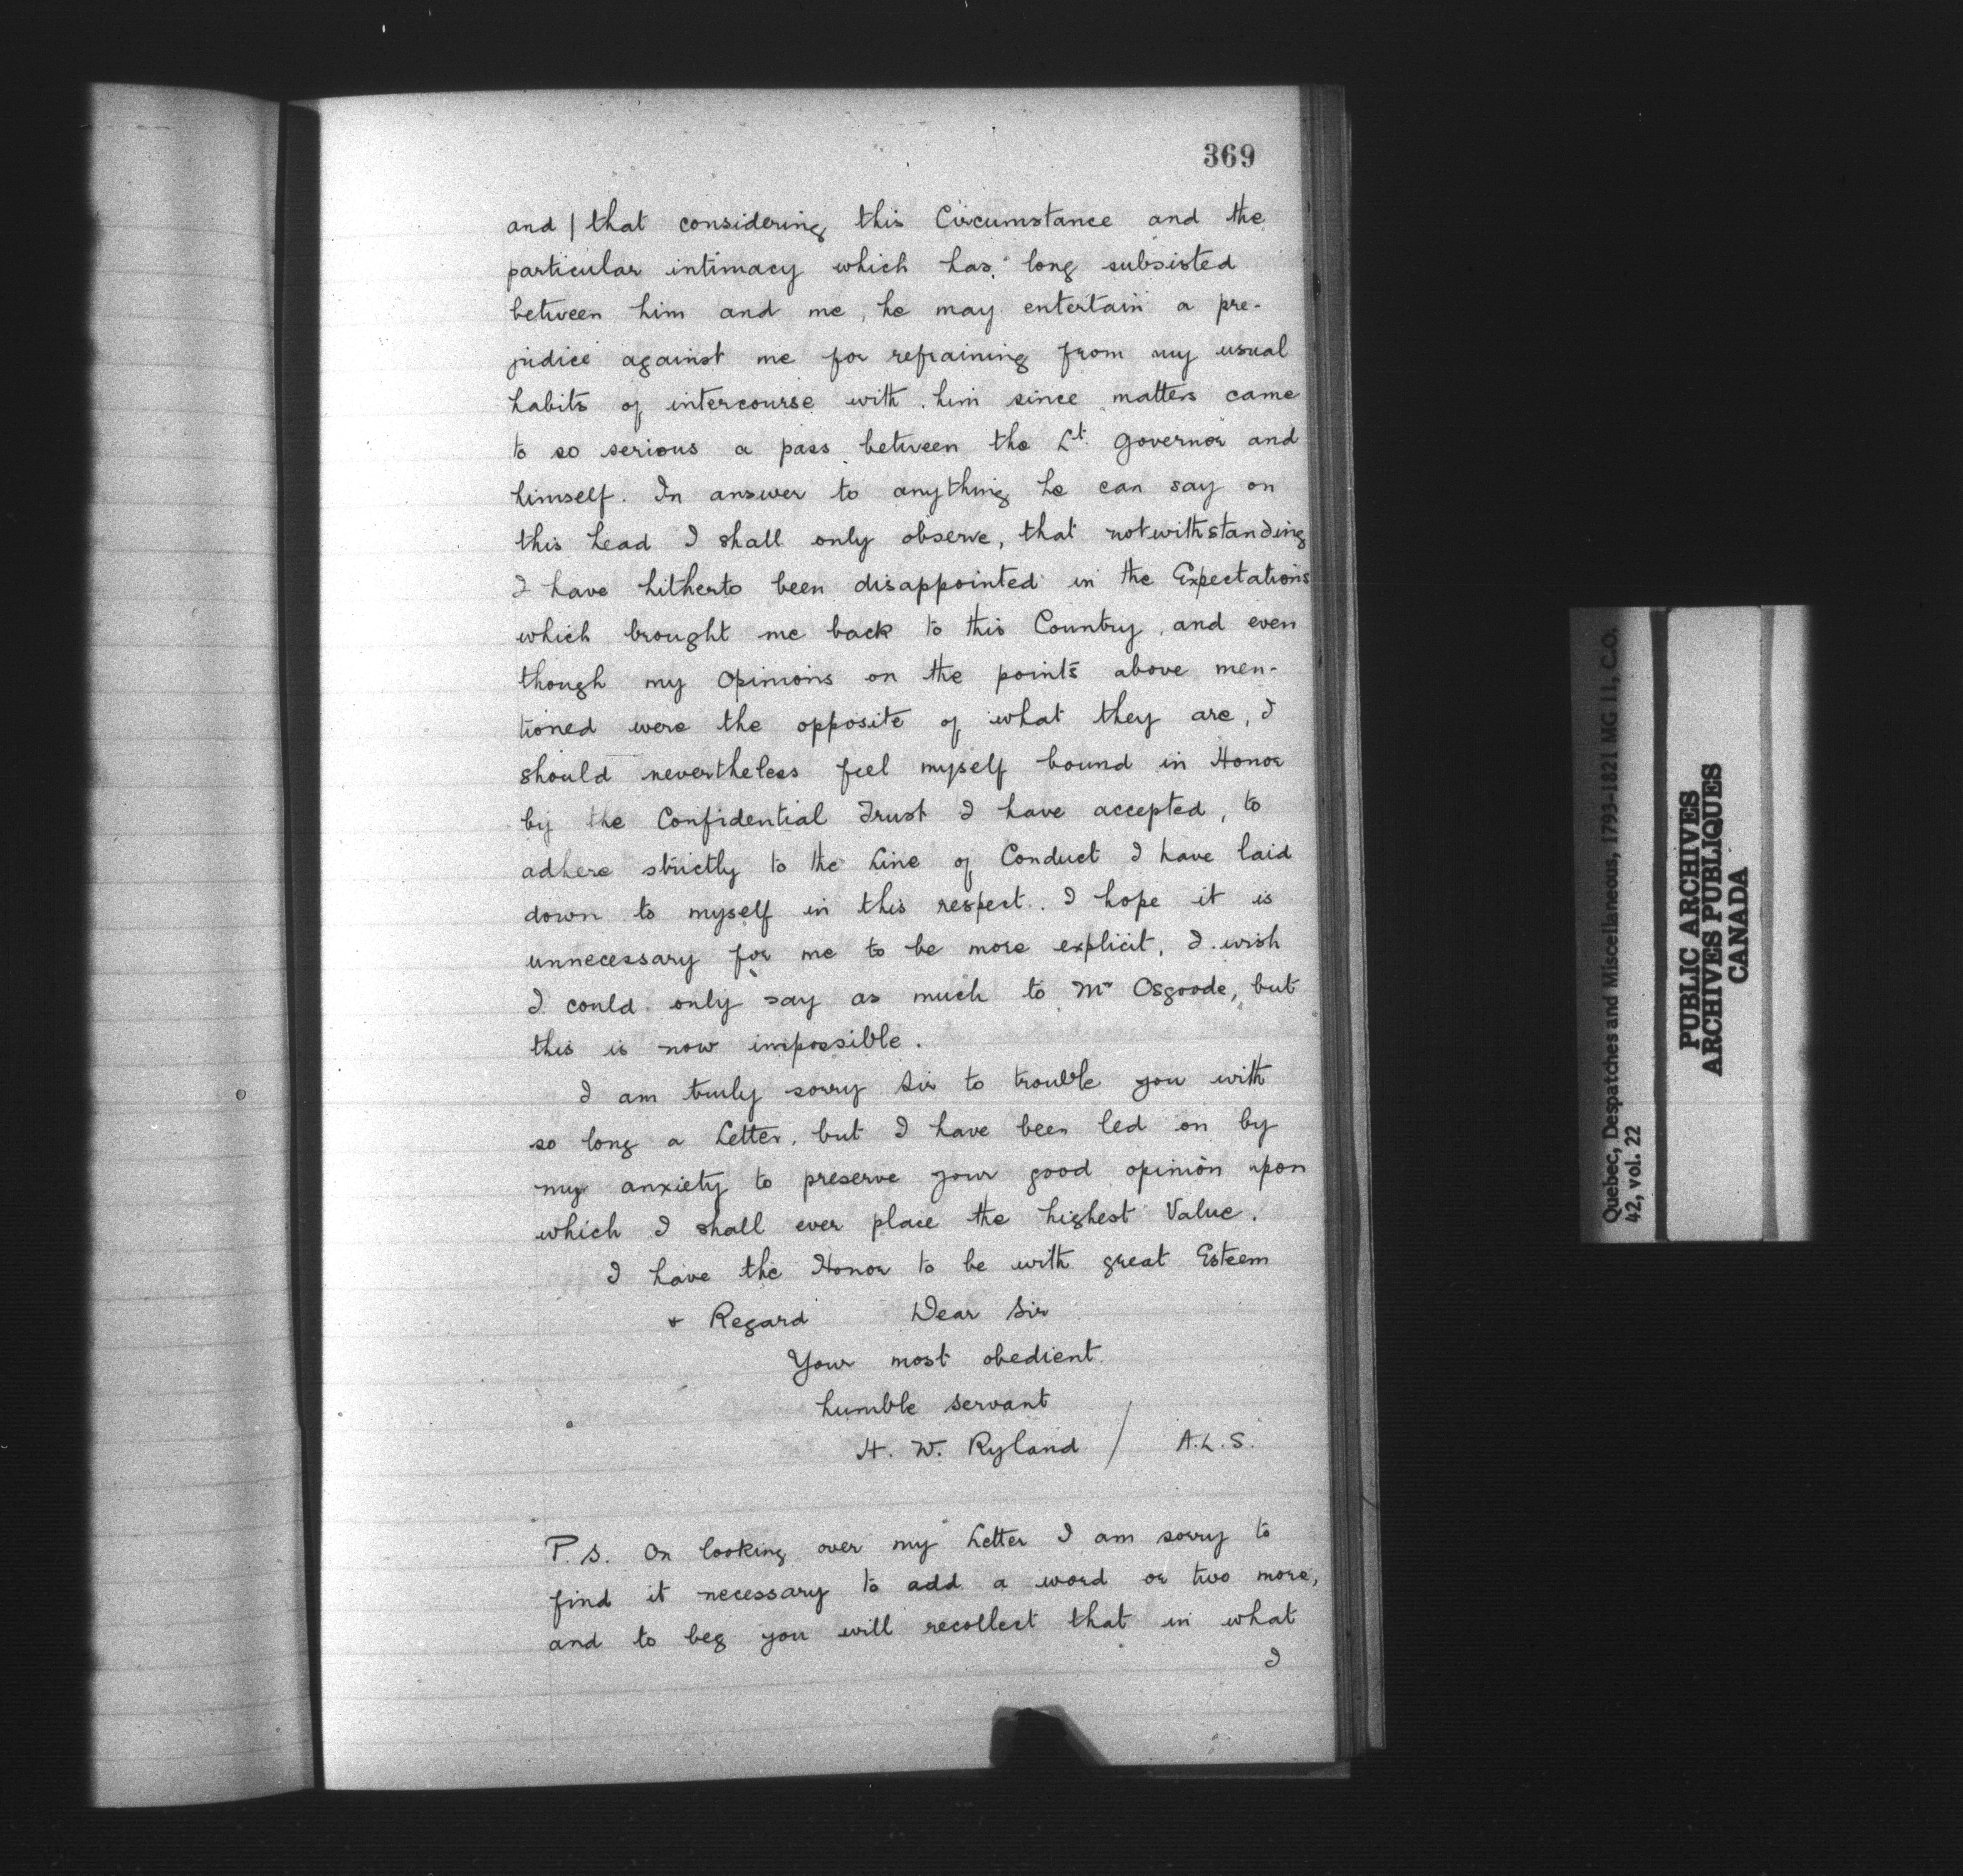 369
and | that considering this Circumstance and the
particular intimacy which has long subsisted
between him and me, he may entertain a pre-
judice against me for refraining from my usual
habits of intercourse with him since matters came
to so serious a pass between the Lt. Governor and
himself. In answer to anything he can say on
this head I shall only observe, that notwithstanding
I have hitherto been disappointed in the Expectations
which brought me back to this Country, and even
though my Opinions on the points above men-
tioned were the opposite of what they are, I
should nevertheless feel myself bound in Honor
by the Confidential Trust I have accepted, to
adhere strictly to the Line of Conduct I have laid
down to myself in this respect. I hope it is
unnecessary for me to be more explicit, I wish
I could only say as much to Mr Osgoode, but
this is now impossible.
I am truly sorry Sir to trouble you with
so long a Letter, but I have been led on by
my anxiety to preserve your good opinion upon
which I shall ever place the highest Value.
I have the Honor to be with great Esteem
& Regard Dear Sir
Your most obedient
humble servant
H. W. Ryland / A.L.S.
P.S. On looking over my Letter I am sorry to
find it necessary to add a word or two more,
and to beg you will recollect that in what
I
Quebec, Despatches and Miscellaneous, 1793-1821 MG 11, C.O.
42, vol. 22
PUBLIC ARCHIVES
ARCHIVES PUBLIQUES
CANADA